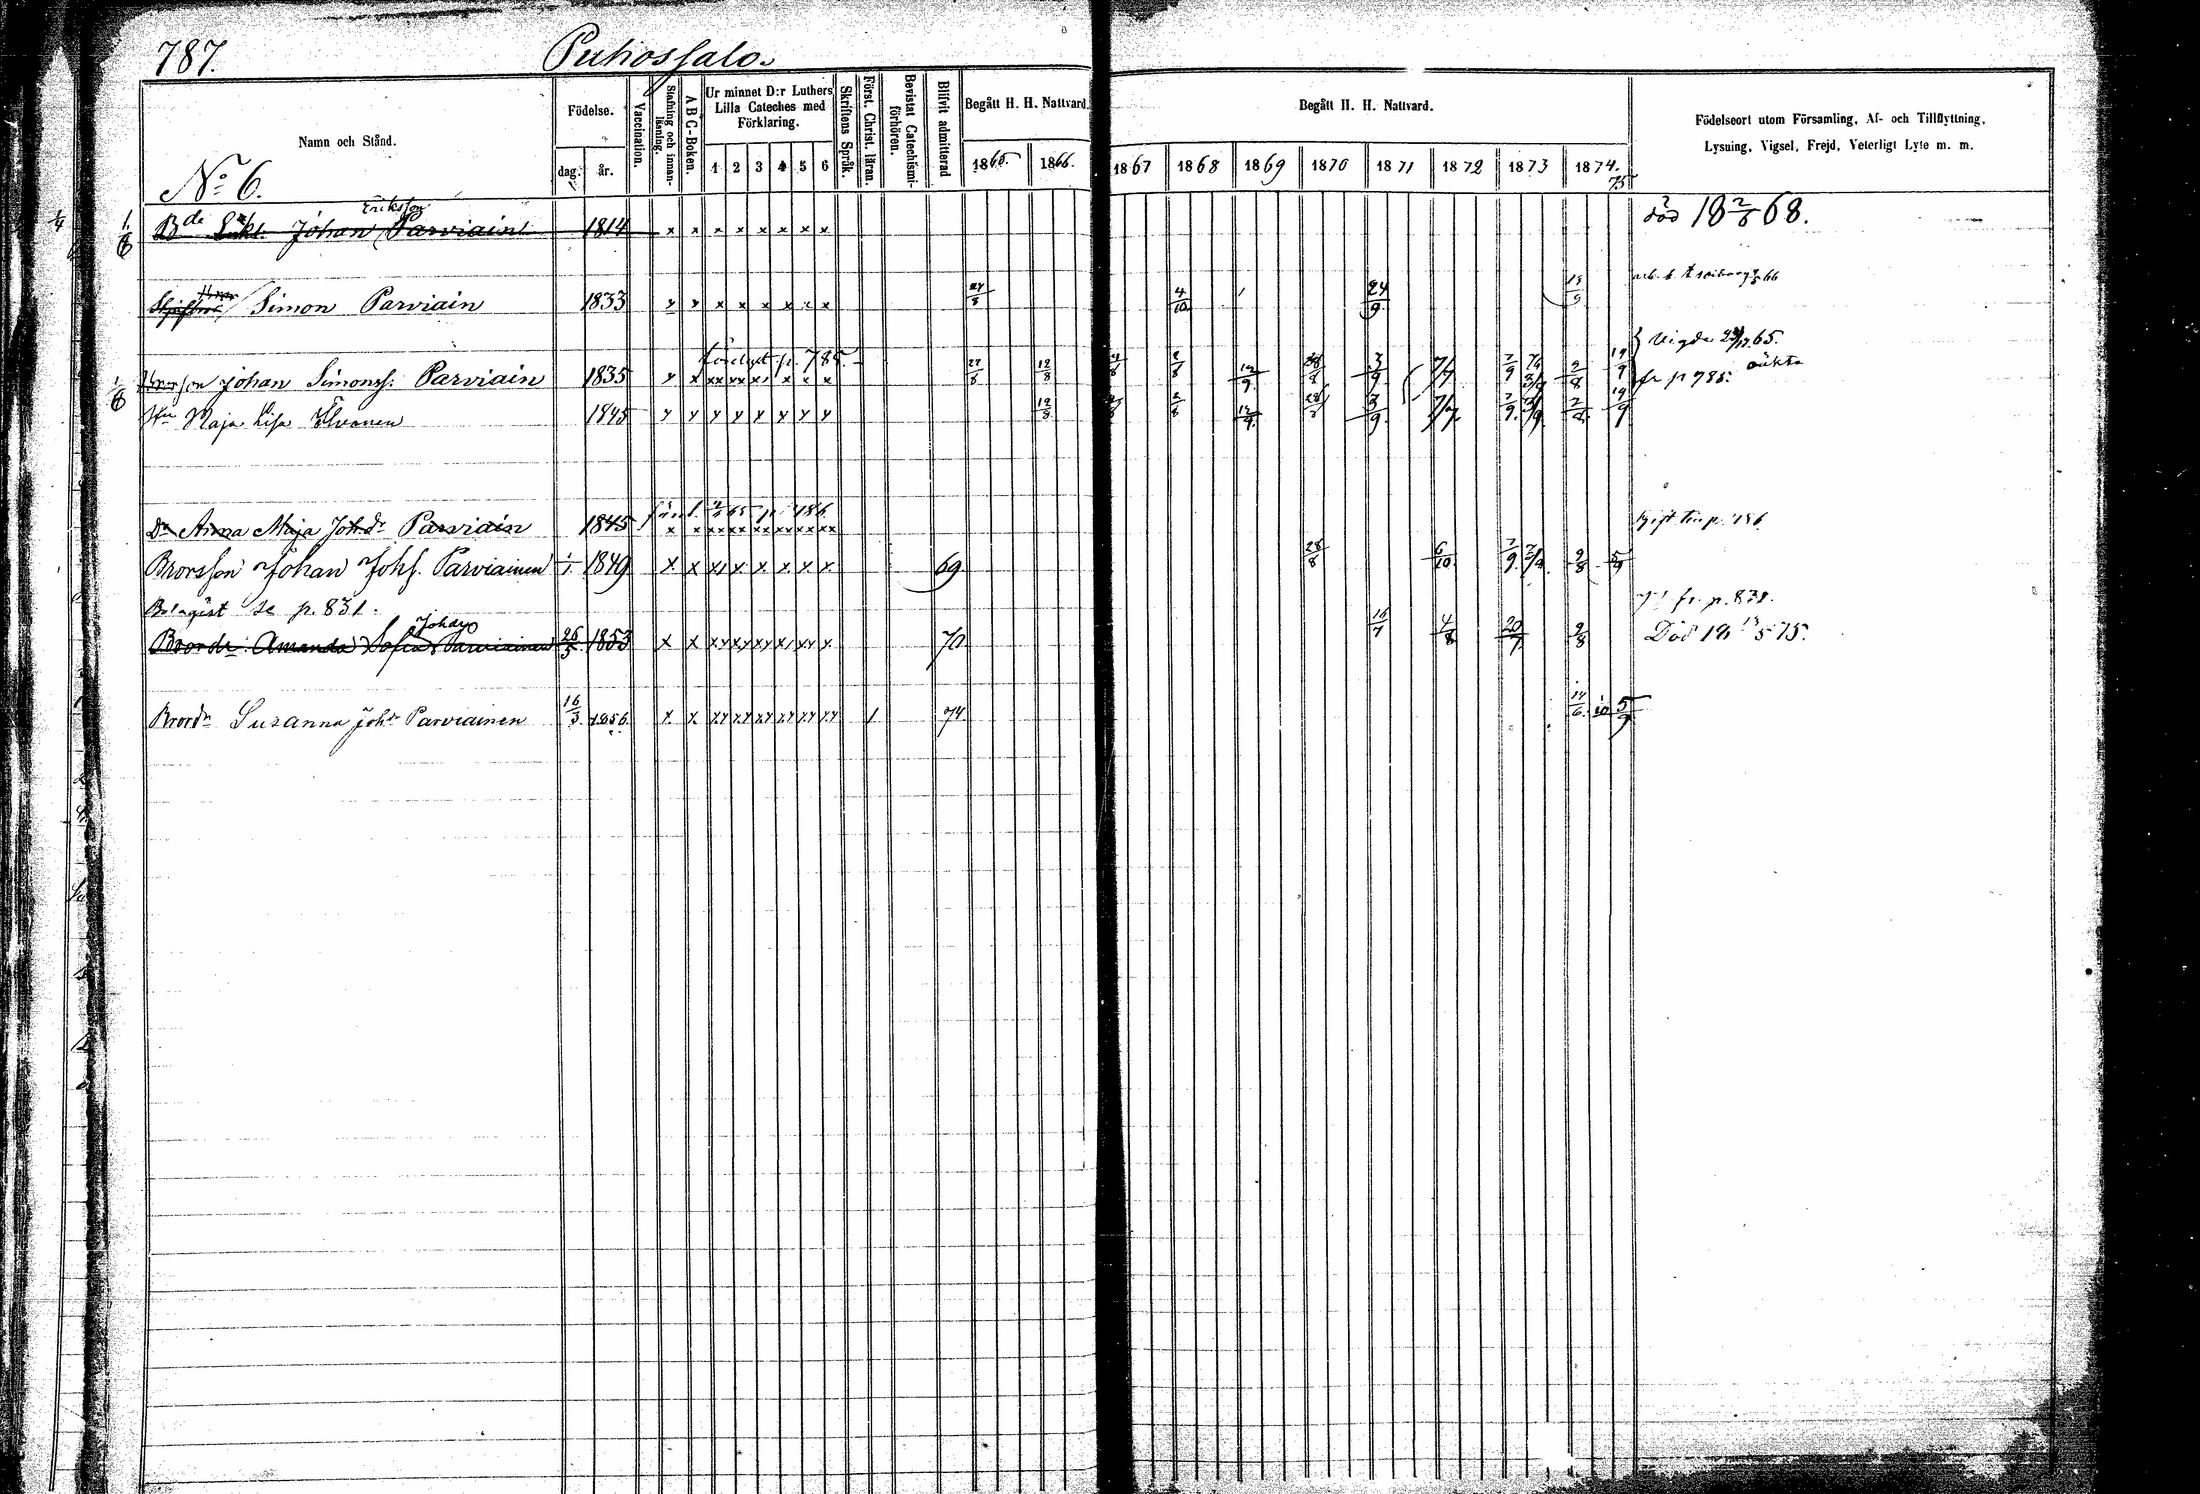 787. Puhossalo.
Namn och Stånd.
No 6.
Födelse.
dag. år.
Vaccination.
Stafning och innanläsning.
ABC-Boken.
Ur minnet D:r Luthers Lilla Cateches med Förklaring.
1 2 3 4 5 6
Skriftens Språk.
Först. Christ. läran.
Bevistat Catechismiförhören.
Blifvit admitterad
Begått H. H. Nattvard.
1865. 1866.
Begått H. H. Nattvard.
1867 1868 1869 1870 1871 1872 1873 1874. 75
Födelseort utom Församling, Af- och Tillflyttning,
Lysning, Vigsel, Frejd, Veterligt Lyte m. m.
Eriksson
Bde Johan Parviain 1814 x x x x x x x x död 18 2/6 68.
Simon Parviain 1833 x x x x x x x x 24/8 4/10 24/9
Vigde 65.
p. 785.
Johan Simonss. Parviain 1835 x x xx xx x x x 12/8 2/8 12/9 28/8 3/9 7/7 7/9 2/8 19/9 fr p 785.
Hu Maja Lisa 1845 x x x x x x x x 12/8 2/8 12/9 28/8 3/9 7/7 7/9 2/8 19/9
65 p 786
Dr Anna Maja Joh.dr Parviain 1845 x x xx xx xx xx xx xx Gift p. 786
Brorsson Johan Johs. Parviainen 1/1 1849 x x x x x x x x 69 28/8 6/10 7/9 2/8 5/9
se p. 831. fr. p. 831.
Johans
Brordr Amanda Sofia Parviainen 26/5 1853 x x xx xx xx x xx x 70 16/7 4/8 20/7 2/8 Död 18 13/5 75.
Brordr Susanna Johdr Parviainen 16/3 1856 x x xx xx xx xx xx xx 1 74 14/6 5/9